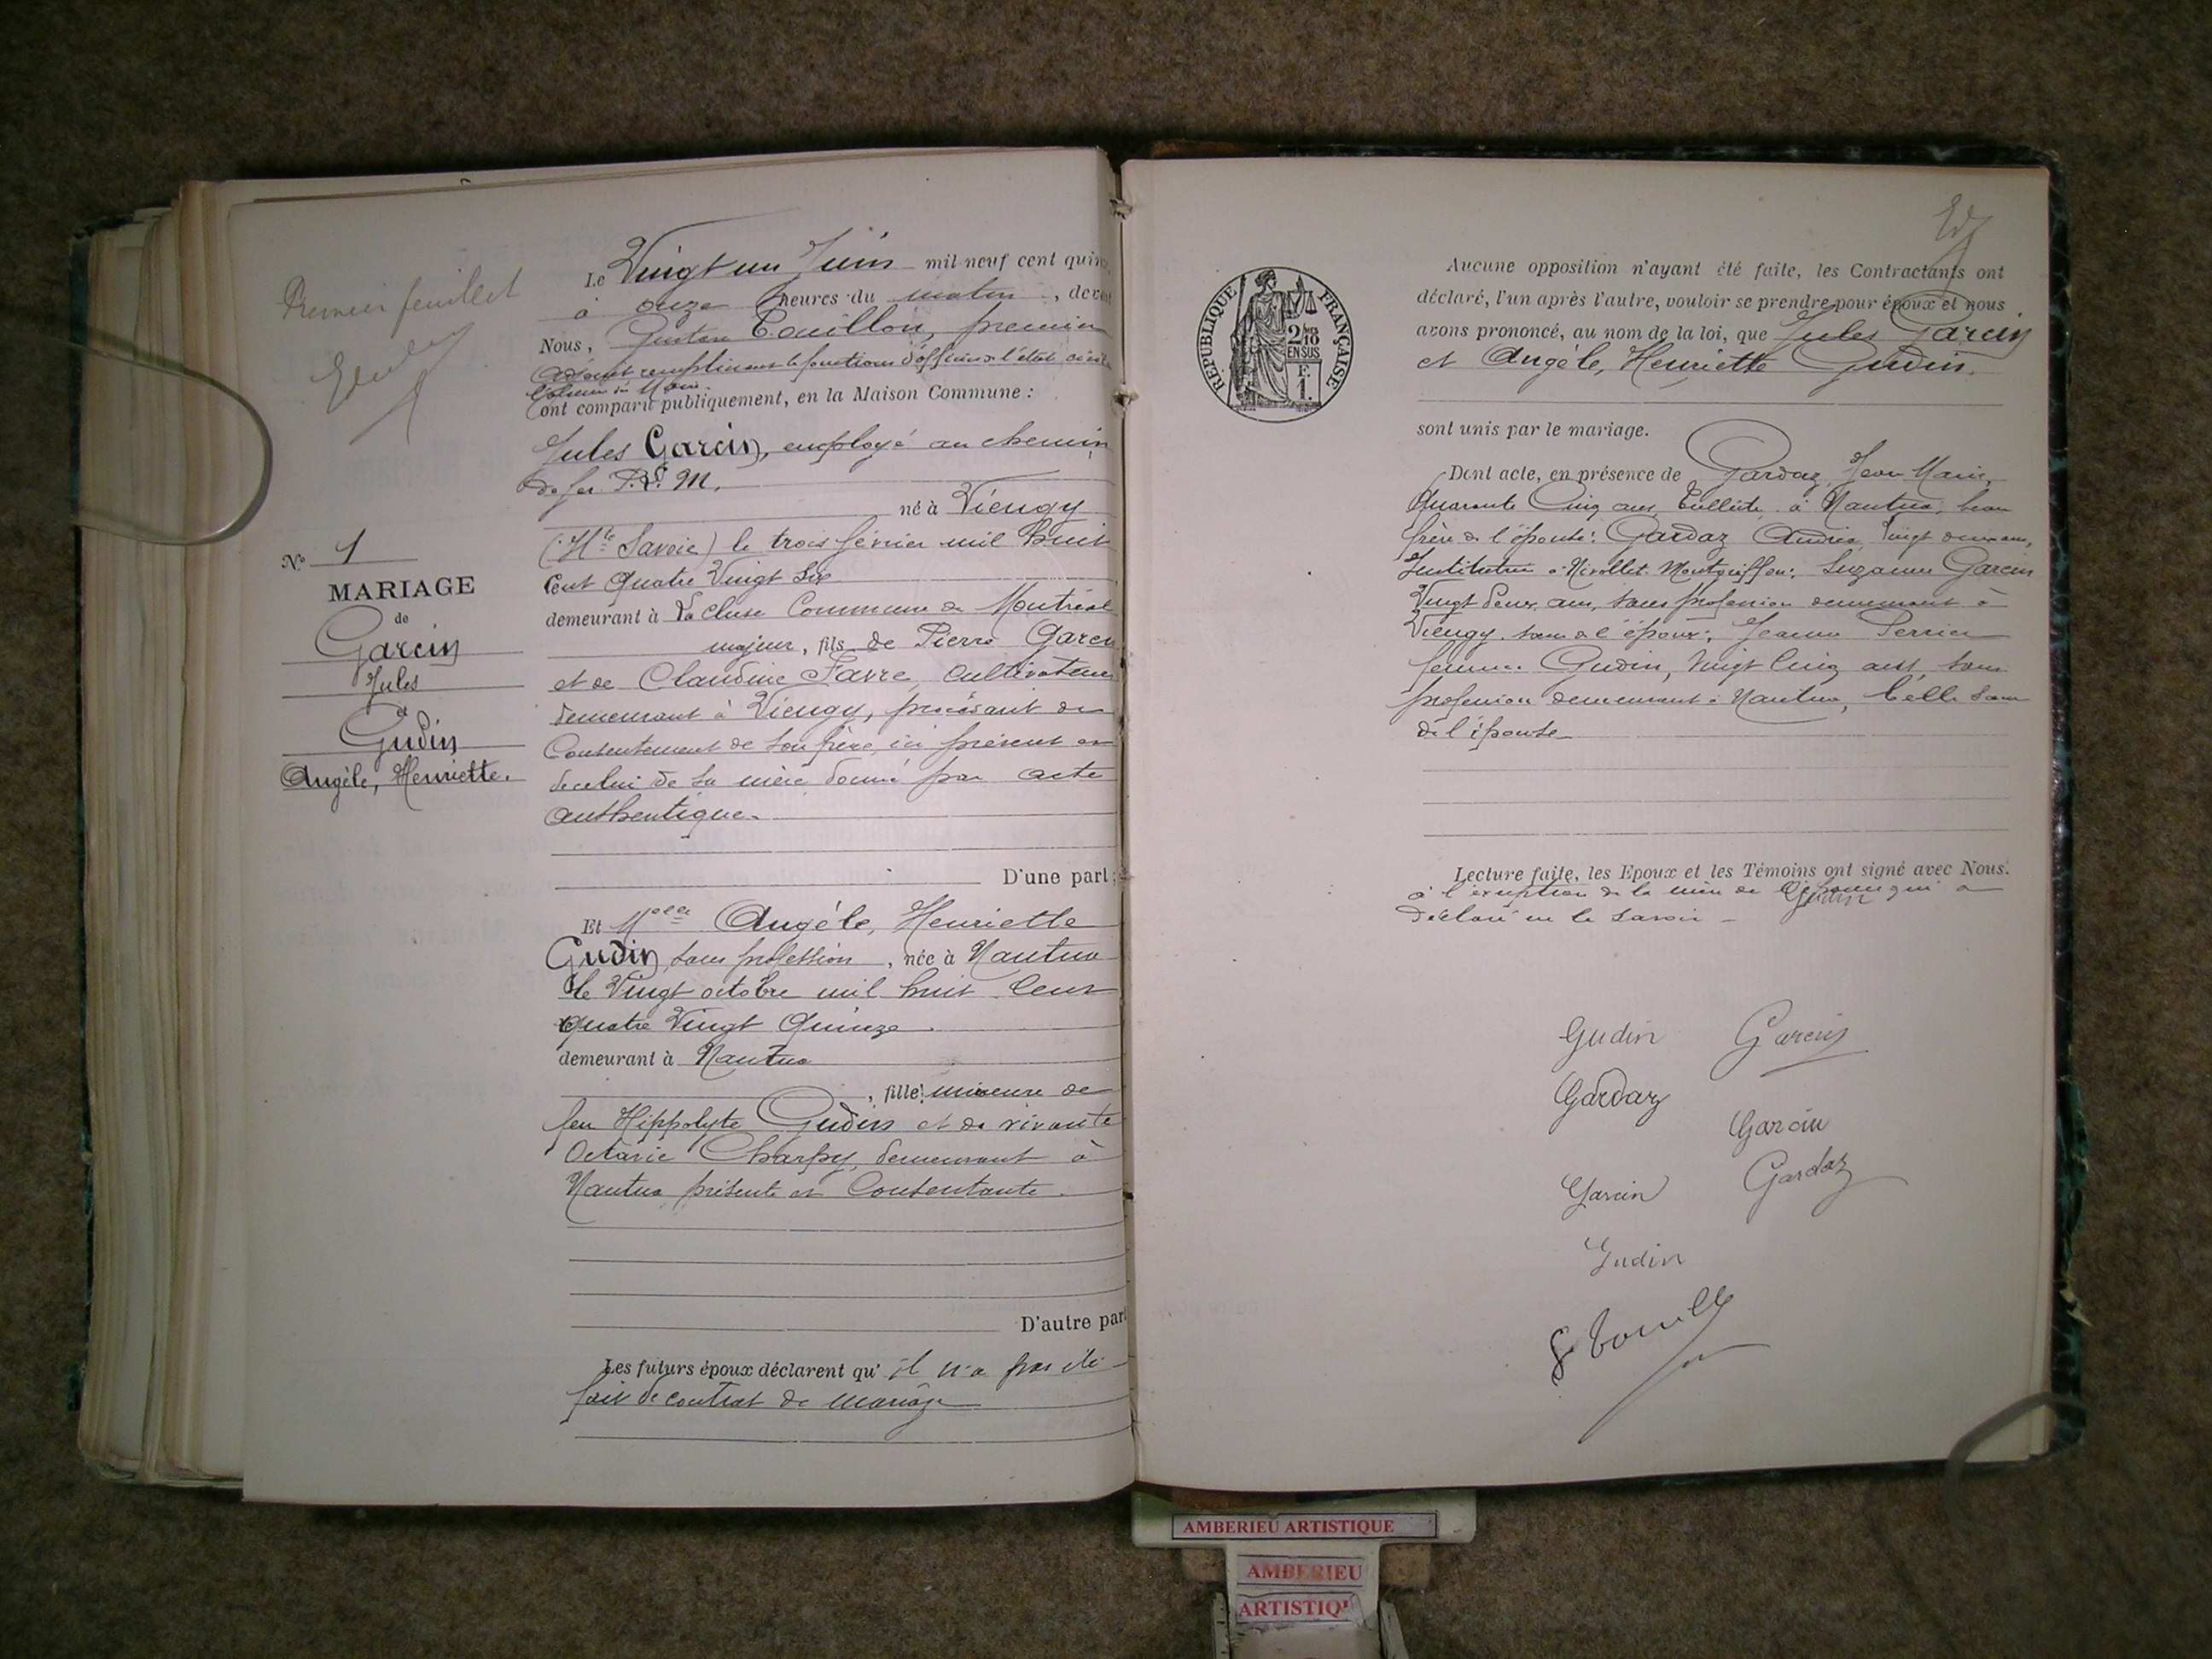 Premier feuillet
Le Vingt un Juin mil neuf cent quin
à onze heures du matin, devant
Nous, Gustave Touillon, premier
Adjoint remplissant les fonctions d'officier de l'état civil
ont comparu publiquement, en la Maison Commune :
Jules Garcin, employé au chemin
de fer P.L.M.
né à Viengy
(Hte Savoie) le trois février mil huit
Cent Quatre Vingt Six
demeurant à La Cluse Commune de Montréal
majeur, fils de Pierre Garcin
et de Claudine Favre, Cultivateurs
demeurant à Viengy, procédant du
Consentement de son père, ici présent et
de celui de sa mère donné par acte
authentique.
D'une part ;
N° 1
MARIAGE
de
Garcin
Jules
et
Gudin
Angèle, Henriette.
Et Melle Angèle, Henriette
Gudin, sans profession, née à Nantua
le Vingt octobre mil huit Cent
Quatre Vingt Quinze
demeurant à Nantua
, fille mineure de
feu Hippolyte Gudin et de vivante
Octavie Charpy, demeurant à
Nantua présente et Consentante.
D'autre part
Les futurs époux déclarent qu'il n'a pas été
fait de contrat de mariage
RÉPUBLIQUE FRANÇAISE
2/10
EN SUS
F.
1.
Aucune opposition n'ayant été faite, les Contractants ont
déclaré, l'un après l'autre, vouloir se prendre pour époux et nous
avons prononcé, au nom de la loi, que Jules Garcin
et Angèle, Henriette Gudin.
sont unis par le mariage.
Dont acte, en présence de Gardaz, Jean Marie,
Quarante Cinq ans, à Nantua, beau
frère de l'épouse ; Gardaz André, Vingt deux ans,
Instituteur à Nivollet-Montgriffon ; Suzanne Garcin
Vingt Deux ans, sans profession demeurant à
Viengy, sœur de l'époux ; Jeanne Perrier
femme Gudin, Vingt Cinq ans, sans
profession demeurant à Nantua, belle sœur
de l'épouse
Lecture faite, les Epoux et les Témoins ont signé avec Nous.
à l'exception de la mère de l'épouse qui a
déclaré ne le savoir -
Gudin Garcin
Gardaz
Garcin
Garcin Gardaz
Gudin
G Touillon
AMBERIEU ARTISTIQUE
AMBERIEU
ARTISTIQU